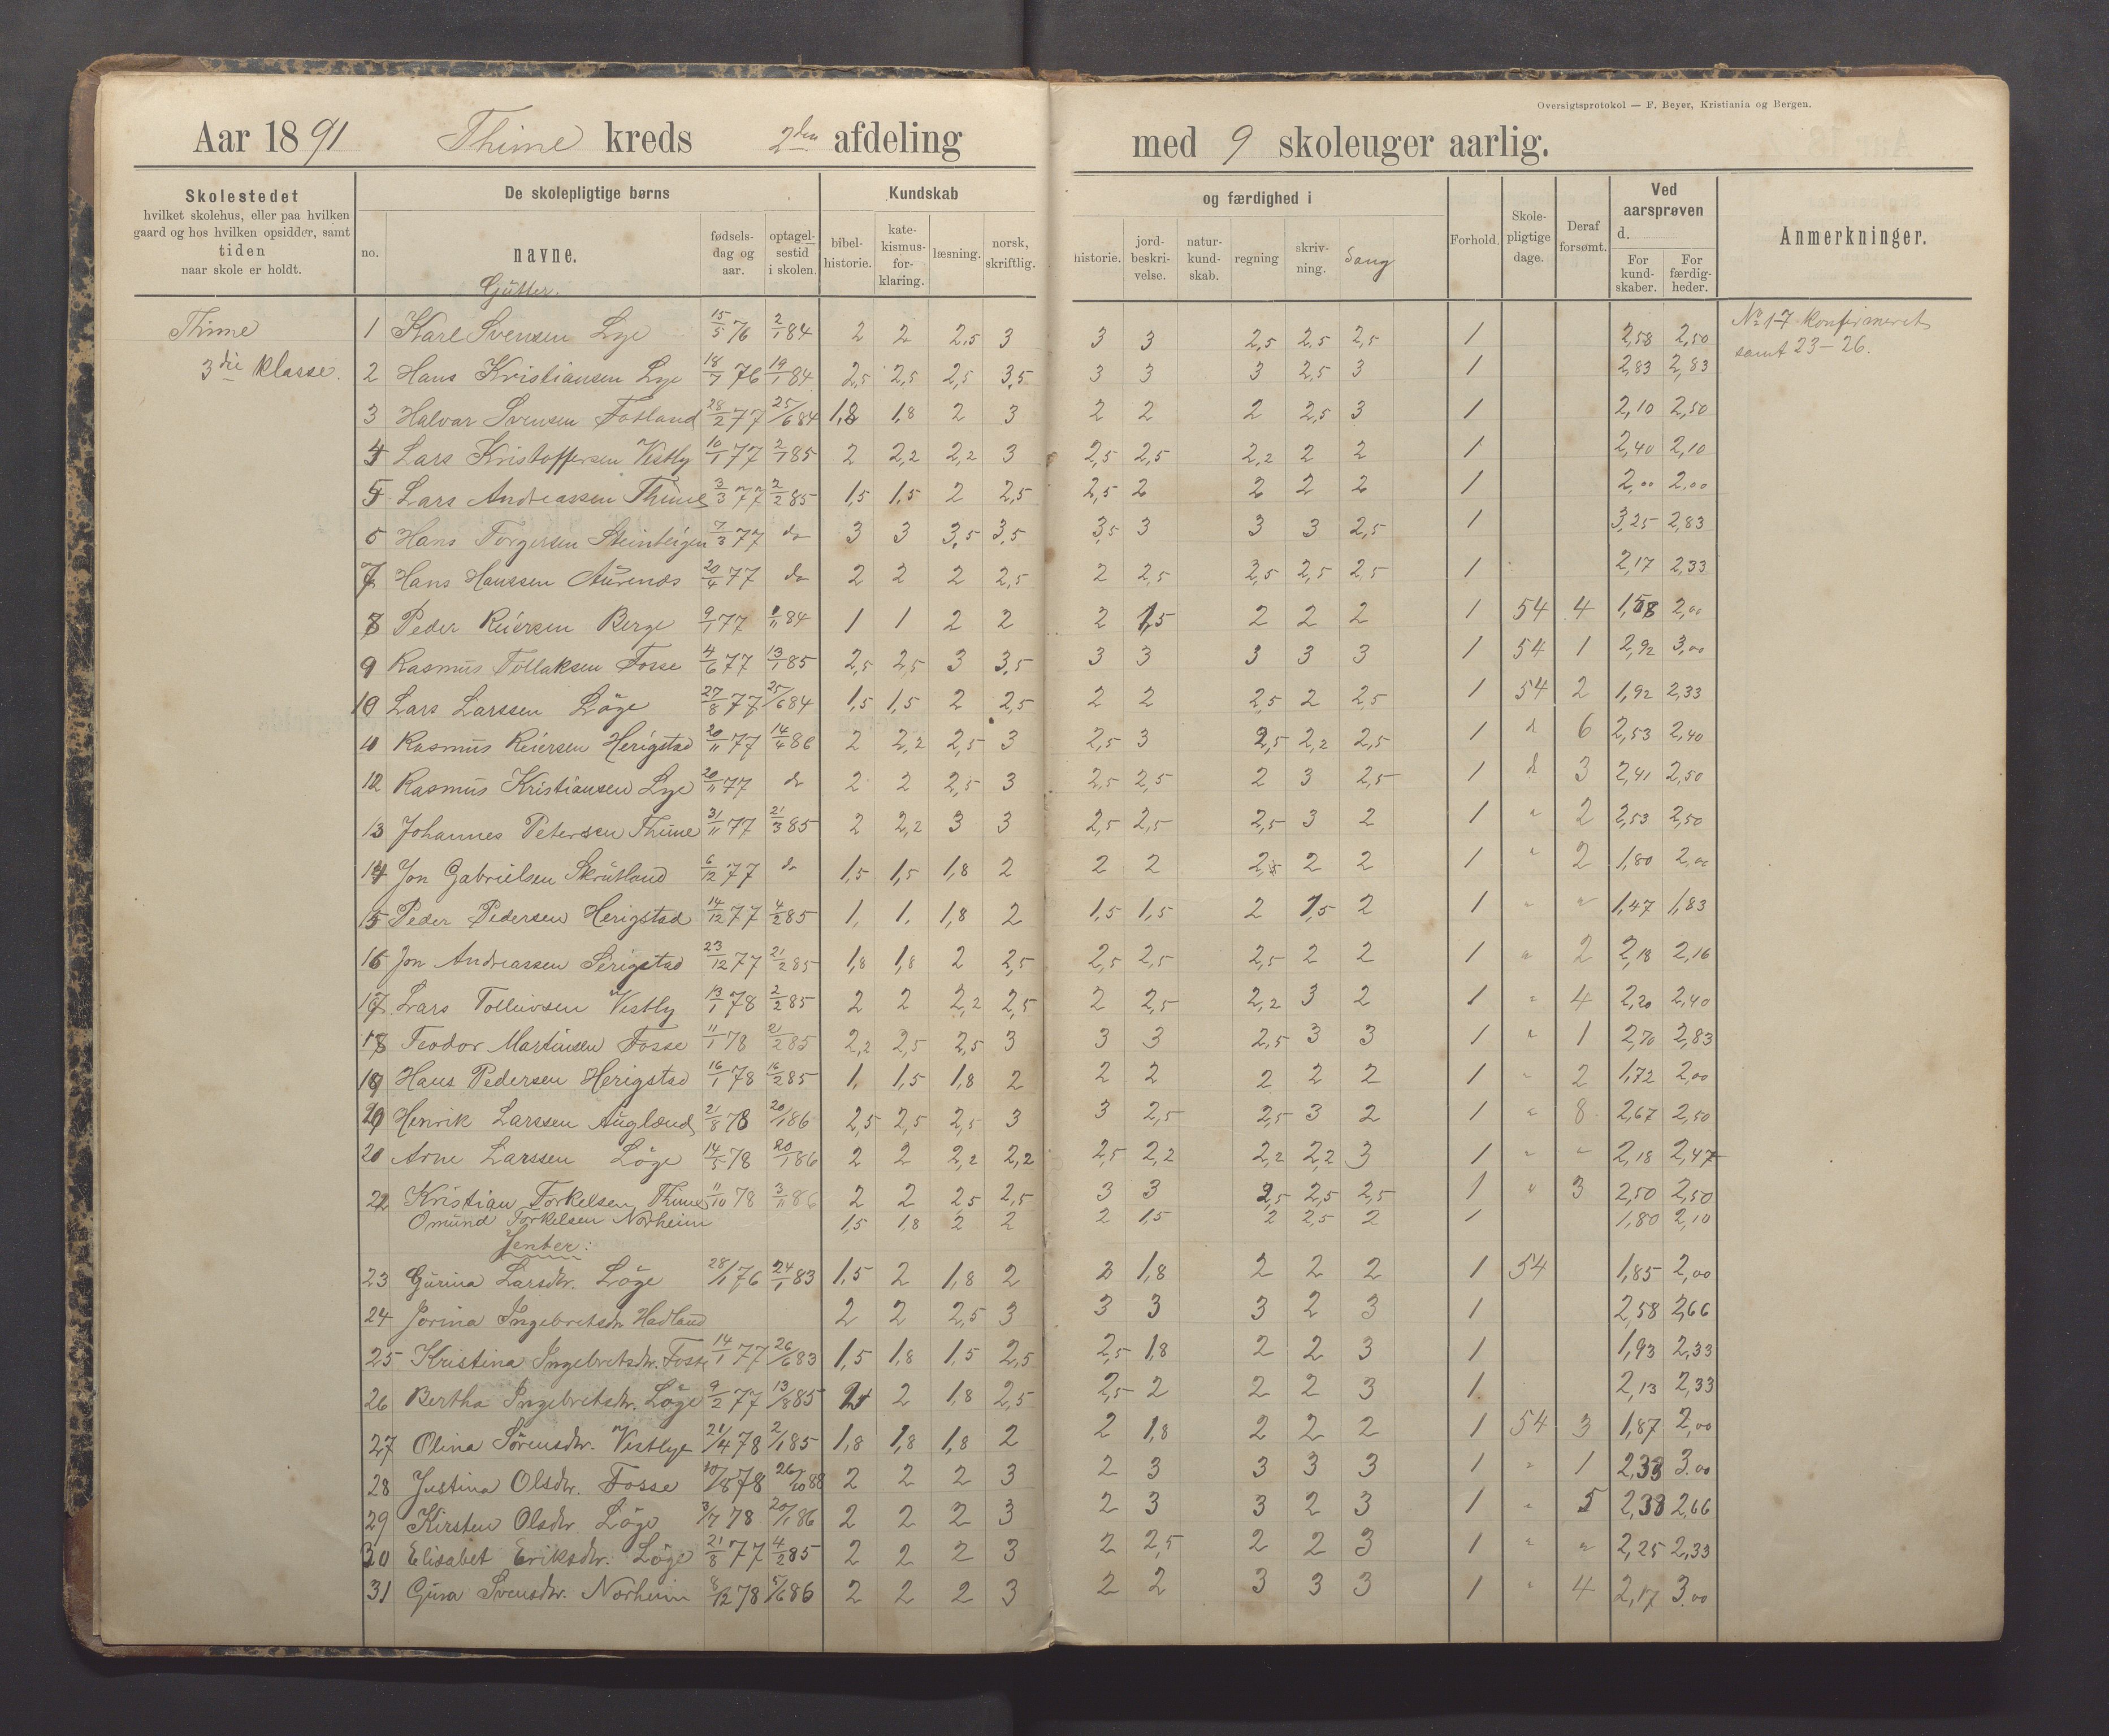 Oversigtsprotokol — F. Beyer, Kristiania og Bergen.
Aar 1891 Thime kreds 2den afdeling med 9 skoleuger aarlig.
Skolestedet hvilket skolehus, eller paa hvilken gaard og hos hvilken opsidder, samt tiden naar skole er holdt.
De skolepligtige børns
no. navne. fødsels-dag og aar. optagel-sestid i skolen.
Kundskab og færdighed i
bibel-historie. kate-kismus-for-klaring. læsning. norsk, skriftlig. historie. jord-beskri-velse. natur-kund-skab. regning skriv-ning. Sang
Forhold. Skole-pligtige dage. Deraf forsømt. Ved aarsprøven d. For kund-skaber. For færdig-heder. Anmerkninger.
Gutter.
Thime 1 Karl Svensen Lye 15/5 76 2/1 84 2 2 2,5 3 3 3 2,5 2,5 2,5 1 2,58 2,50 No 1-7 konfirmeret
3die klasse. 2 Hans Kristiansen Lye 18/7 76 19/1 84 2,5 2,5 2,5 3,5 3 3 3 2,5 3 1 2,83 2,83 samt 23-26.
3 Halvar Svensen Fotland 28/2 77 25/6 84 1,8 1,8 2 3 2 2 2 2,5 3 1 2,10 2,50
4 Lars Kristoffersen Vestly 10/1 77 2/1 85 2 2,2 2,2 3 2,5 2,5 2,2 2 2 1 2,40 2,10
5 Lars Andreassen Thime 3/3 77 2/2 85 1,5 1,5 2 2,5 2,5 2 2 2 2 1 2,00 2,00
6 Hans Torgersen Steinteigen 7/3 77 do 3 3 3,5 3,5 3,5 3 3 3 2,5 1 3,25 2,83
7 Hans Hanssen Aurenæs 20/4 77 do 2 2 2 2,5 2 2,5 2,5 2,5 2,5 1 2,17 2,33
8 Peder Reiersen Berge 9/1 77 1/11 84 1 1 2 2 2 1,5 2 2 2 1 54 4 1,58 2,00
9 Rasmus Tollaksen Fosse 4/6 77 13/1 85 2,5 2,5 3 3,5 3 3 3 3 3 1 54 1 2,92 3,00
10 Lars Larssen Löge 27/8 77 25/6 84 1,5 1,5 2 2,5 2 2 2,5 2 2,5 1 54 2 1,92 2,33
11 Rasmus Reiersen Herigstad 20/11 77 14/4 86 2 2,2 2,5 3 2,5 3 2,5 2,2 2,5 1 d 6 2,53 2,40
12 Rasmus Kristiansen Lye 20/11 77 do 2 2 2,5 3 2,5 2,5 2 3 2,5 1 d 3 2,41 2,50
13 Johannes Petersen Thime 31/11 77 21/3 85 2 2,2 3 3 2,5 2,5 2,5 3 2 1 " 2 2,53 2,50
14 Jon Gabrielsen Skrutland 6/12 77 do 1,5 1,5 1,8 2 2 2 2,5 2 2 1 " 2 1,80 2,00
15 Peder Pedersen Herigstad 14/12 77 4/2 85 1, 1, 1,8 2 1,5 1,5 2 1,5 2 1 " " 1,47 1,83
16 Jon Andreassen Serigstad 23/12 77 21/2 85 1,8 1,8 2 2,5 2,5 2,5 2,5 2 2 1 " 2 2,18 2,16
17 Lars Tolleivsen Vestly 13/1 78 2/2 85 2 2 2,2 2,5 2 2,5 2,2 3 2 1 " 4 2,20 2,40
18 Teodor Martinsen Fosse 11/1 78 21/2 85 2,2 2,5 2,5 3 3 3 2,5 3 3 1 " 1 2,70 2,83
19 Hans Pedersen Herigstad 16/1 78 16/2 85 1, 1,5 1,8 2 2 2 2 2 2 1 " 2 1,72 2,00
20 Henrik Larssen Auglænd 21/8 78 20/1 86 2,5 2,5 2,5 3 3 2,5 2,5 3 2 1 " 8 2,67 2,50
20 Arne Larssen Löge 14/5 78 20/1 86 2 2 2,2 2,2 2,5 2,2 2,2 2,2 3 1 " " 2,18 2,47
22 Kristian Torkelsen Thime 11/10 78 3/11 86 2 2 2,5 2,5 3 3 2,5 2,5 2,5 1 " 3 2,50 2,50
Omund Torkelsen Norheim 1,5 1,8 2 2 2 1,5 2 2,5 2 1 1,80 2,10
Jenter:
23 Gurina Larsdtr. Löge 28/1 76 24/1 83 1,5 2 1,8 2 2 1,8 2 2 2 1 54 1,85 2,00
24 Jorina Ingebretsdtr Hadland 2 2 2,5 3 3 3 3 2 3 1 2,58 2,66
25 Kristina Ingebretsdtr. Fosse 14/1 77 26/6 83 1,5 1,8 1,5 2,5 2,5 1,8 2 2 3 1 1,93 2,33
26 Bertha Ingebretsdtr. Löge 9/2 77 13/8 85 2 2 1,8 2,5 2,5 2 2 2 3 1 2,13 2,33
27 Olina Sörensdtr. Vestlye 21/4 78 2/1 85 1,8 1,8 1,8 2 2 1,8 2 2 2 1 54 3 1,87 2,00
28 Justina Olsdtr. Fosse 10/8 78 26/10 88 2 2 2 3 2 3 3 3 3 1 " 1 2,33 3,00
29 Kirsten Olsdtr. Löge 3/7 78 20/1 86 2 2 2 3 2 3 3 2 3 1 " 5 2,38 2,66
30 Elisabet Eriksdtr. Löge 21/8 77 4/2 85 2 2 2 3 2 2,5 2 2 3 1 " " 2,25 2,33
31 Gura Svensdtr. Norheim 8/12 78 5/6 86 2 2 2 3 2 2 3 3 3 1 " 4 2,17 3,00